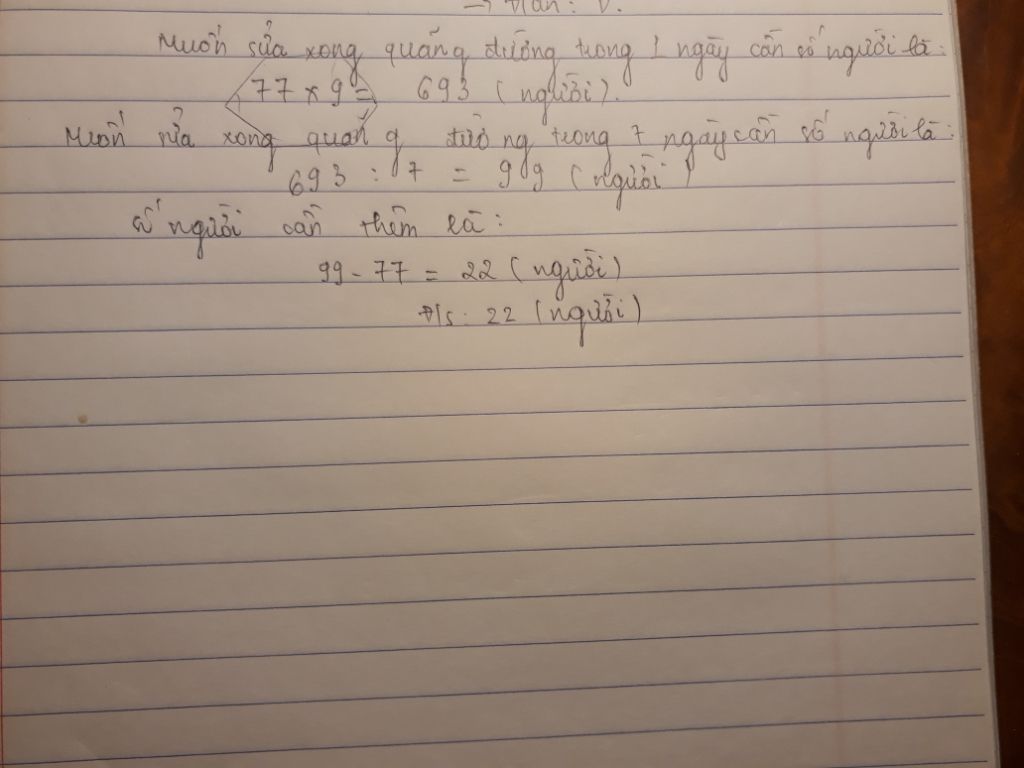 Muốn sửa xong quãng đường trong 1 ngày cần số người là:
77 x 9 = 693 (người).
Muốn sửa xong quãng đường trong 7 ngày cần số người là:
693 : 7 = 99 (người)
số người cần thêm là:
99 - 77 = 22 (người)
Đ/s: 22 (người)